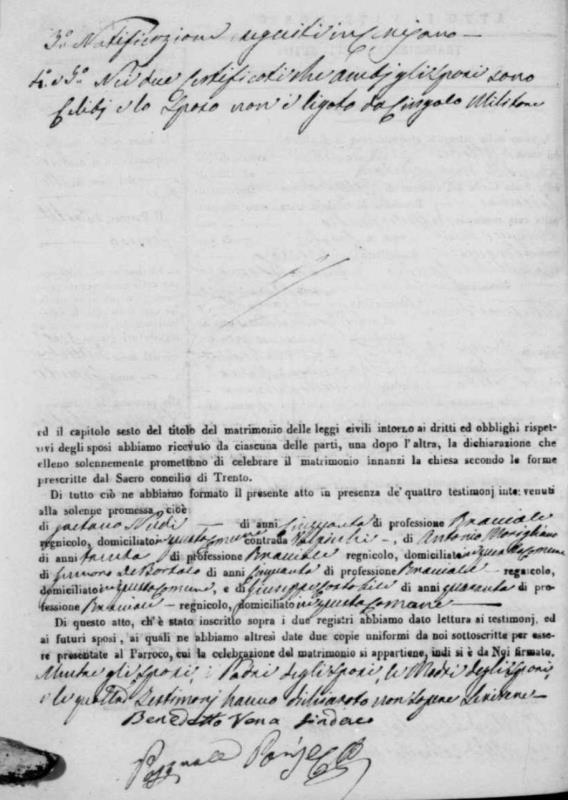 3.º Notificazione seguita in
4.º e 5.º Nei due Certificati che ambi gli sposi sono
Celibi e lo Sposo non è ligato da Cingolo Militare
ed il capitolo sesto del titolo del matrimonio delle leggi civili intorzo ai dritti ed obblighi rispet-
vivi degli sposi abbiamo ricevuto da ciascuna delle parti, una dopo l'altra, la dichiarazione che
elleno solennemente promettono di celebrare il matrimonio innanzi la chiesa secondo le forme
prescritte dal Sacro concilio di Trento.
Di tutto ciò ne abbiamo formato il presente atto in presenza de' quattro testimonj intervenuti
alla solenne promessa, cioè
di Gaetano di anni Cinquanta di professione Bracciale
regnicolo, domiciliato in questa Comune contrada di Antonio
di anni trenta di professione Bracciale regnicolo, domiciliato in questa Comune
di Simone de Bortolo di anni Cinquanta di professione Bracciale - regnicolo,
domiciliato in questa Comune, e di Giuseppe di anni quaranta di pro-
fessione Bracciale - regnicolo, domiciliato in questa Comune
Di questo atto, ch'è stato inscritto sopra i due registri abbiamo dato lettura ai testimonj, ed
ai futuri sposi, ai quali ne abbiamo altresì date due copie uniformi da noi sottoscritte per esse-
re presentate al Parroco, cui la celebrazione del matrimonio si appartiene, indi si è da Noi firmato,
Mentre gli Sposi, i Padri degli Sposi, le Madri degli Sposi
e li quattro Testimonj hanno dichiarato non sapere scrivere
Benedetto Vena Sindaco
Pasquale